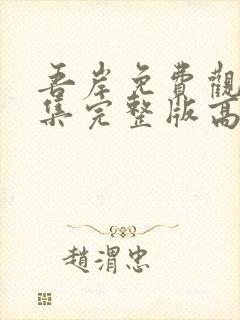 吾岸免費觀
集完整版高
趙渭忠